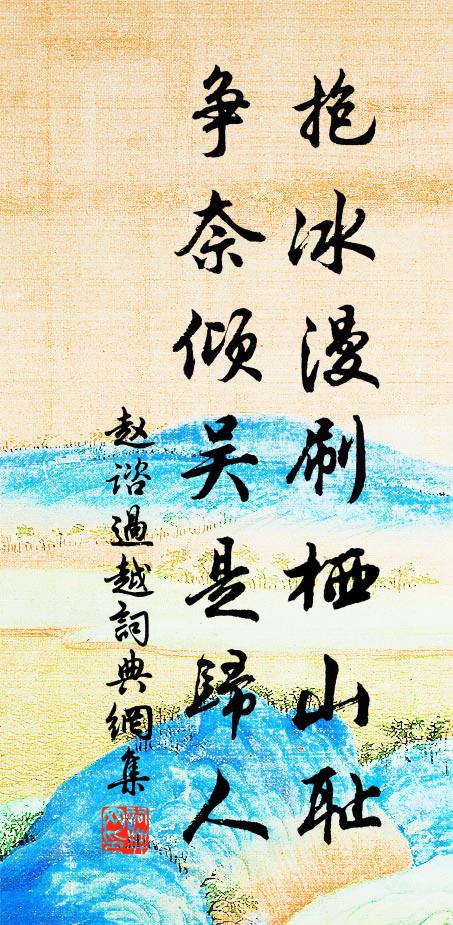 抱冰漫刷栖山耻
争奈倾吴是歸人
赵谘過越詞典網集